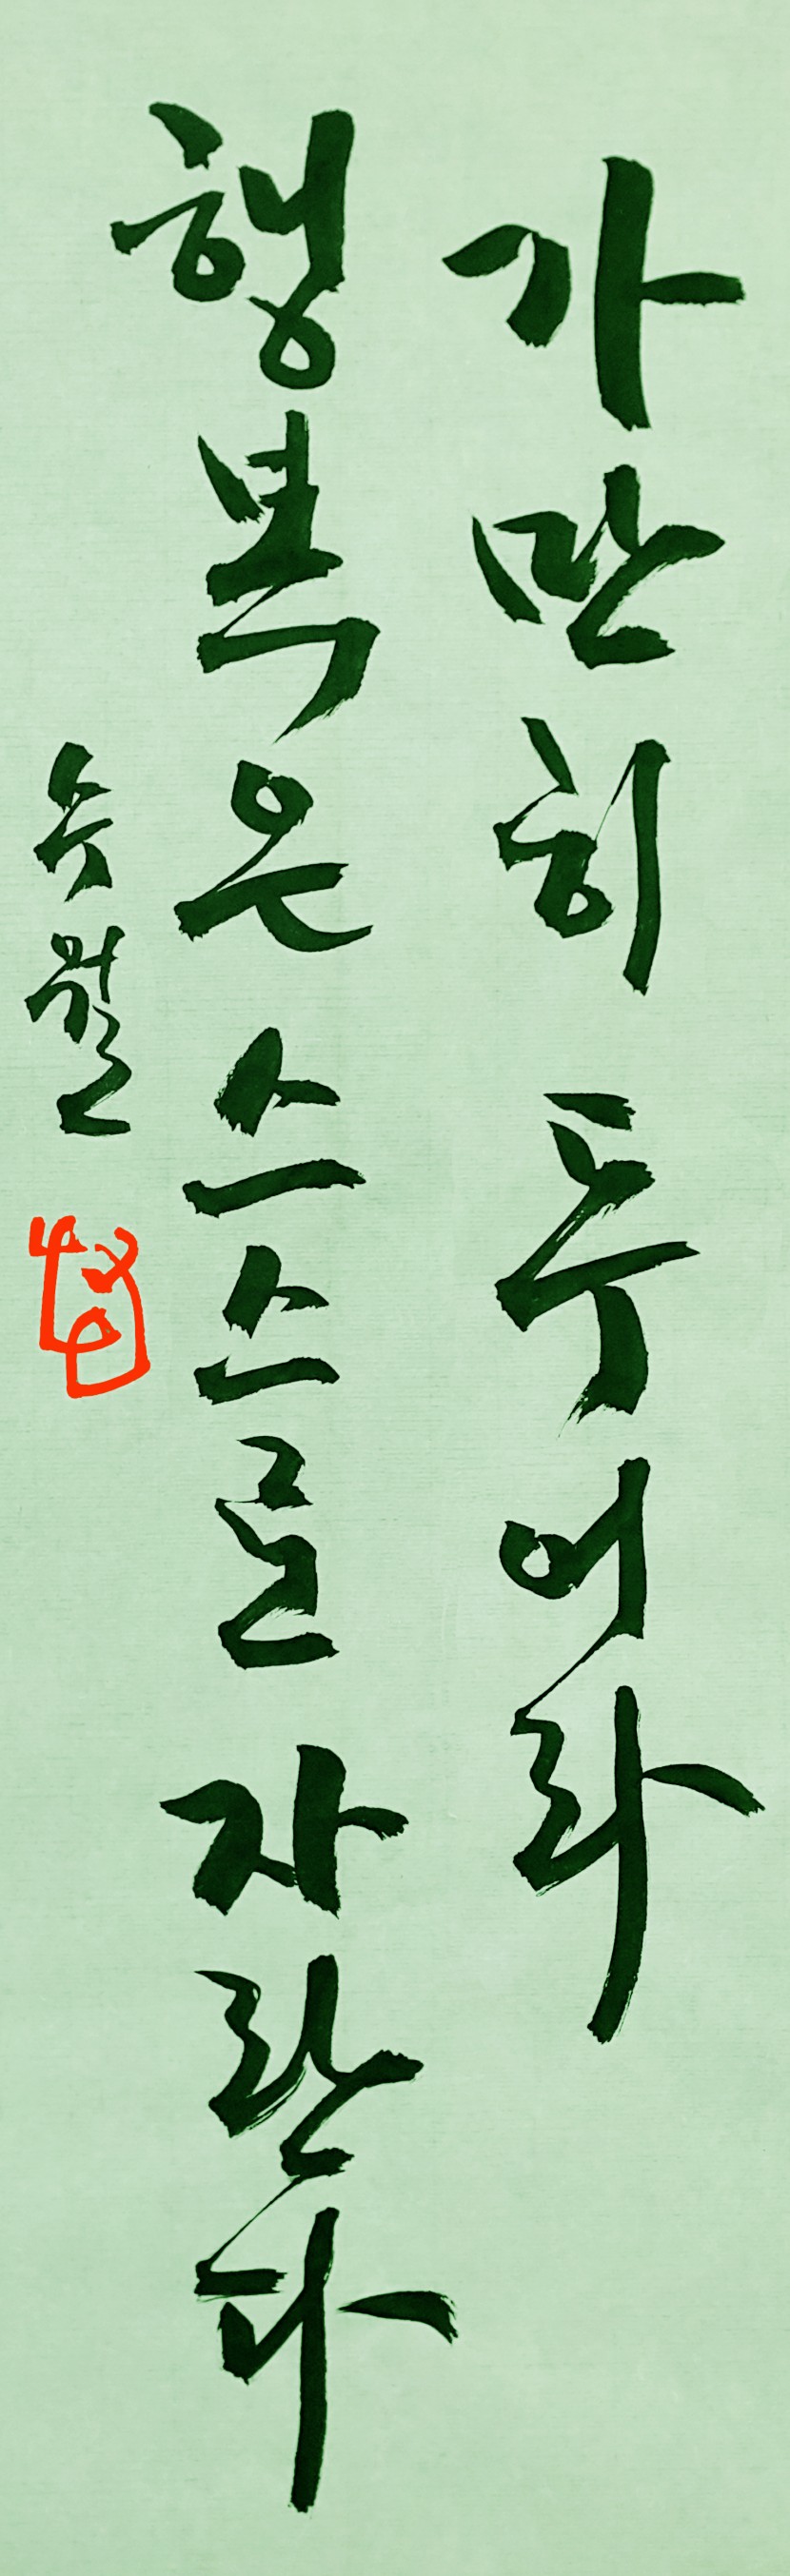 가만히 두어라
행복은 스스로 자란다